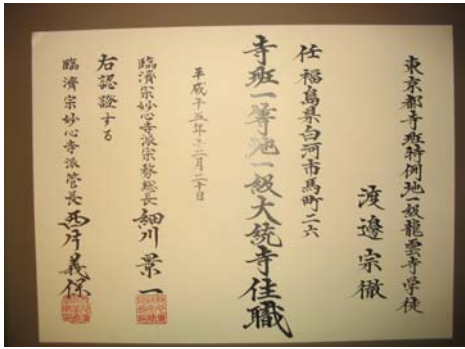 東京都寺班特例地一級龍雲寺学徒
渡邉宗徹
任 福島県白河市馬町二六
寺班一等地一級大統寺住職
平成十五年十二月二十日
臨済宗妙心寺派宗務総長 細川景一
右認證する
臨済宗妙心寺派管長 西片義保